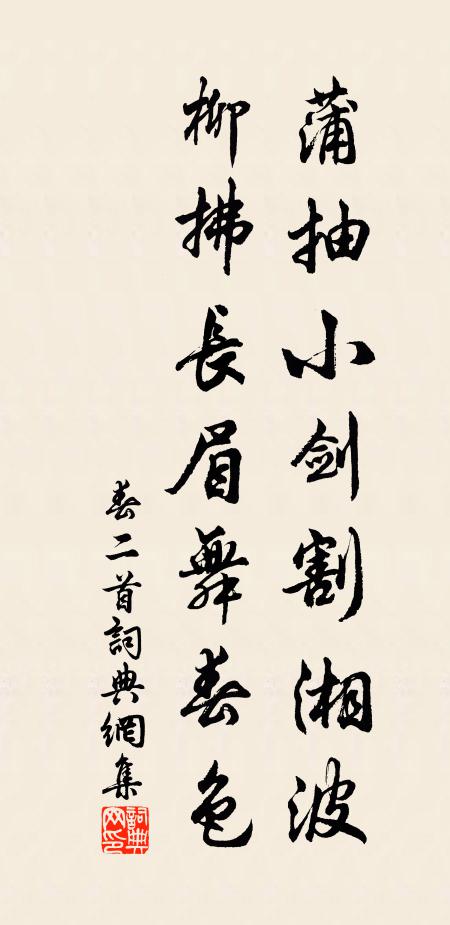 蒲抽小剑割湘波
柳拂長眉舞春色
春二首詞典網集
詞典网印